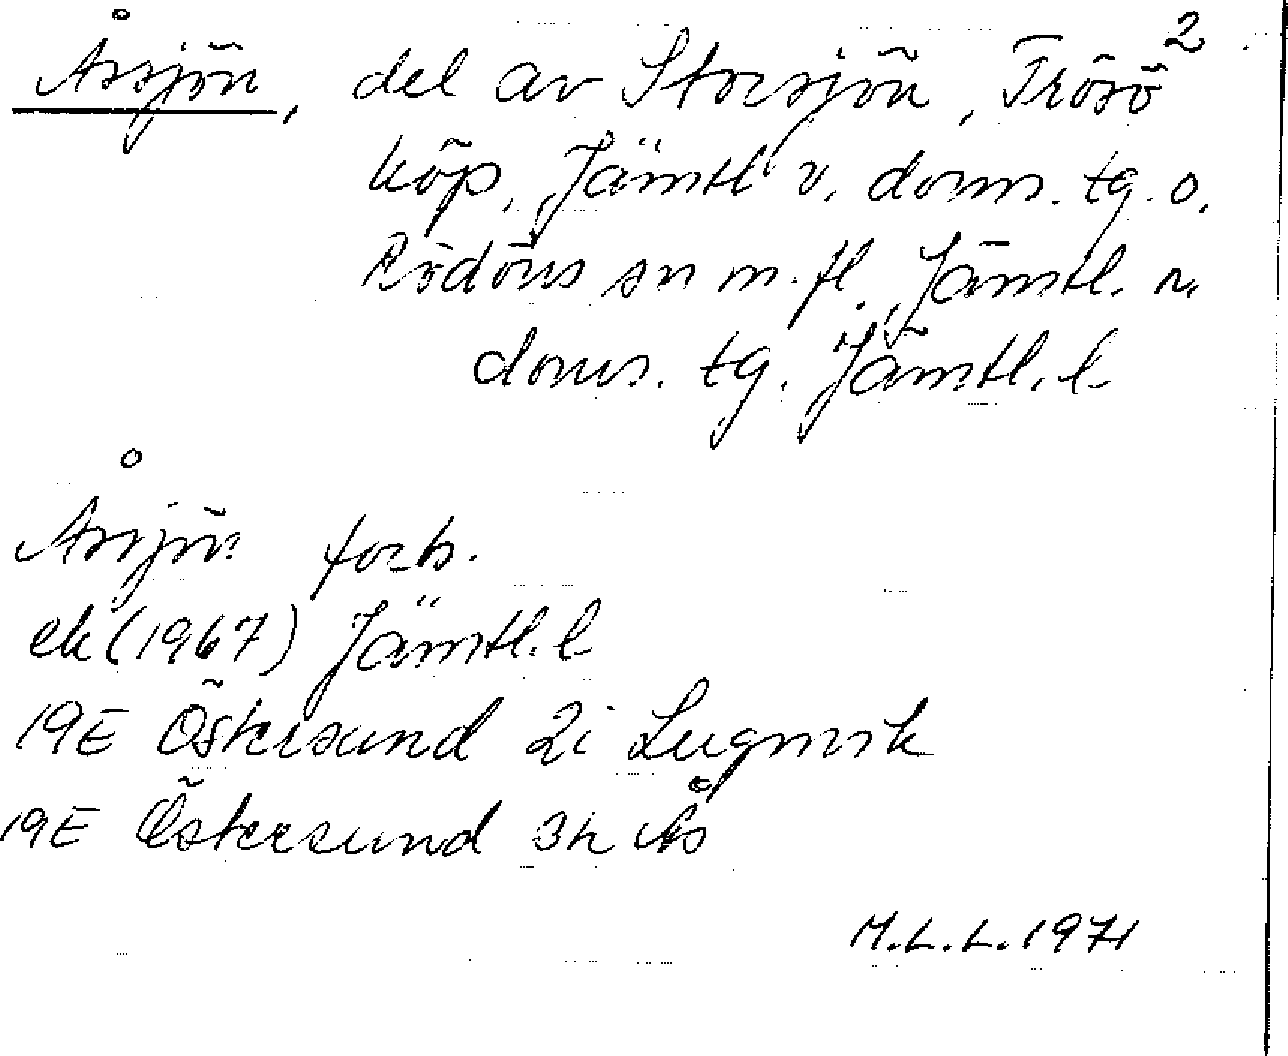 Åssjön, del av Storsjön, Frösö 2
köp, Jämtl v. doms. tg. o.
Rödöns sn m. fl., Jämtl. n.
doms. tg. Jämtl. l
Åssjön forts.
ek (1967) Jämtl. l
19E Östersund 2i Lugnvik
19E Östersund 3h Ås
M.L.L. 1971